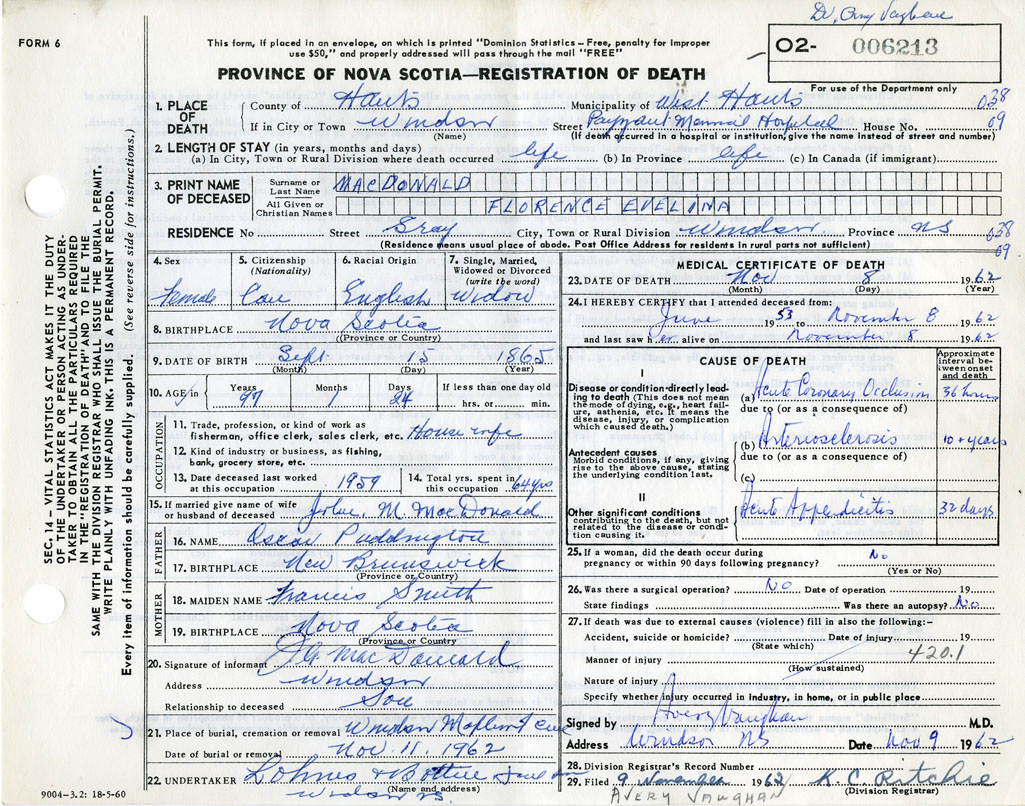 Dr. Avery Vaughan
FORM 6
This form, if placed in an envelope, on which is printed "Dominion Statistics – Free, penalty for improper
use $50," and properly addressed will pass through the mail "FREE"
O2- 006213
PROVINCE OF NOVA SCOTIA—REGISTRATION OF DEATH
For use of the Department only
1. PLACE OF DEATH County of Hants Municipality of West Hants 038
If in City or Town Windsor (Name) Street Payzant Memorial Hospital House No. 09
(If death occurred in a hospital or institution, give the name instead of street and number)
2. LENGTH OF STAY (in years, months and days)
(a) In City, Town or Rural Division where death occurred life (b) In Province life (c) In Canada (if immigrant)
3. PRINT NAME OF DECEASED Surname or Last Name MACDONALD
All Given or Christian Names FLORENCE EVELINA
RESIDENCE No Street Gray City, Town or Rural Division Windsor Province NS 038
(Residence means usual place of abode. Post Office Address for residents in rural parts not sufficient) 09
4. Sex Female
5. Citizenship (Nationality) Can
6. Racial Origin English
7. Single, Married, Widowed or Divorced (write the word) Widow
8. BIRTHPLACE Nova Scotia
(Province or Country)
9. DATE OF BIRTH Sept 15 1865
(Month) (Day) (Year)
10. AGE in Years 97 Months 1 Days 24 If less than one day old
hrs. or min.
OCCUPATION
11. Trade, profession, or kind of work as
fisherman, office clerk, sales clerk, etc. Housewife
12. Kind of industry or business, as fishing,
bank, grocery store, etc.
13. Date deceased last worked at this occupation 1959
14. Total yrs. spent in this occupation 64 yrs
15. If married give name of wife or husband of deceased John M. MacDonald
FATHER
16. NAME Oscar Puddington
17. BIRTHPLACE New Brunswick
(Province or Country)
MOTHER
18. MAIDEN NAME Francis Smith
19. BIRTHPLACE Nova Scotia
(Province or Country)
20. Signature of informant MacDonald
Address Windsor
Relationship to deceased Son
21. Place of burial, cremation or removal Windsor Maplewood Cem
Date of burial or removal Nov. 11. 1962
22. UNDERTAKER Lohnes &
(Name and address)
Windsor NS.
9004–3.2: 18-5-60
MEDICAL CERTIFICATE OF DEATH
23. DATE OF DEATH Nov 8 1962
(Month) (Day) (Year)
24. I HEREBY CERTIFY that I attended deceased from:
June 1953 to November 8 1962
and last saw her alive on November 8 1962
CAUSE OF DEATH
Approximate interval between onset and death
I
Disease or condition directly leading to death (This does not mean the mode of dying, e.g., heart failure, asthenia, etc. It means the disease, injury, or complication which caused death.)
(a) Acute Coronary Occlusion 36 hours
due to (or as a consequence of)
Antecedent causes
Morbid conditions, if any, giving rise to the above cause, stating the underlying condition last.
(b) Arteriosclerosis 10 + years
due to (or as a consequence of)
(c)
II
Other significant conditions
contributing to the death, but not related to the disease or condition causing it.
Acute Appendicitis 32 days
25. If a woman, did the death occur during
pregnancy or within 90 days following pregnancy? No
(Yes or No)
26. Was there a surgical operation? No Date of operation 19
State findings Was there an autopsy? No
27. If death was due to external causes (violence) fill in also the following:–
Accident, suicide or homicide? Date of injury 19
(State which)
420.1
Manner of injury
(How sustained)
Nature of injury
Specify whether injury occurred in industry, in home, or in public place
Signed by Avery Vaughan M.D.
Address Windsor NS Date Nov 9 1962
28. Division Registrar's Record Number
29. Filed 9 November 1962 K C Ritchie
(Division Registrar)
AVERY VAUGHAN
SEC. 14 – VITAL STATISTICS ACT MAKES IT THE DUTY
OF THE UNDERTAKER OR PERSON ACTING AS UNDER-
TAKER TO OBTAIN ALL THE PARTICULARS REQUIRED
IN THE "REGISTRATION OF DEATH" AND TO FILE THE
SAME WITH THE DIVISION REGISTRAR WHO SHALL ISSUE THE BURIAL PERMIT.
WRITE PLAINLY WITH UNFADING INK. THIS IS A PERMANENT RECORD.
Every item of information should be carefully supplied. (See reverse side for instructions.)